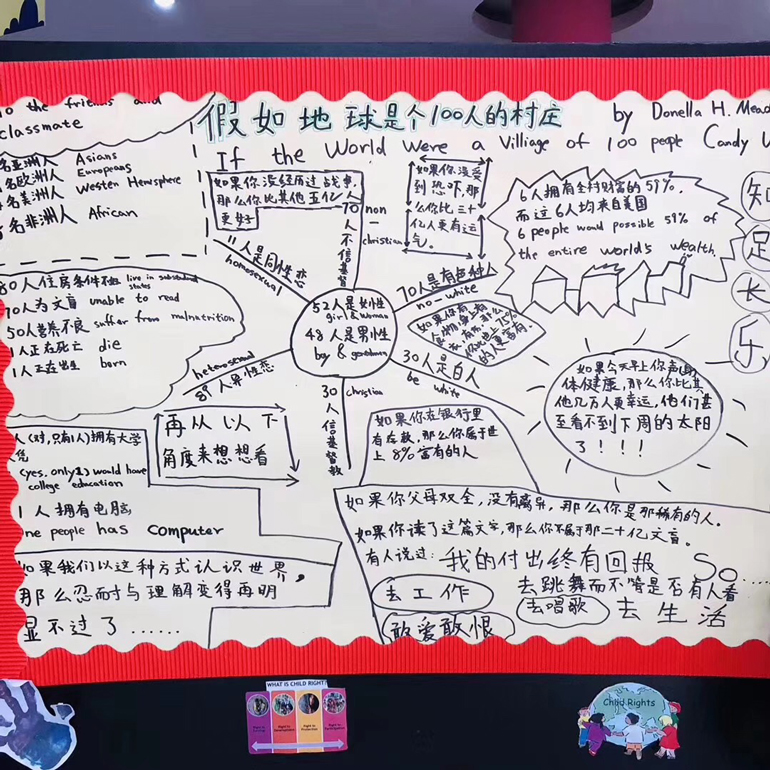 To the friends and
classmate
假如地球是个100人的村庄
by Donella H. Mead
If the World Were a Villiage of 100 people
Candy
名亚洲人 Asians
名欧洲人 Europeans
名美洲人 Westen Hemsphere
名非洲人 African
如果你没经历过战争,
那么你比其他五亿人
更好
70人不信基督
non-christian
如果你没受
到恐吓,那
么你比三十
亿人更有运
气。
6人拥有全村财富的59%,
而这6人均来自美国
6 people woud possible 59% of
the entire world's wealth.
知足长乐
11人是同性恋
homosexual
70人是有色种人
no-white
80人住房条件不好 live in
70人为文盲 unable to read
50人营养不良 suffer from malnutrition
1人正在死亡 die
1人正在出生 born
52人是女性
girl & woman
48人是男性
boy & gentleman
30人是白人
be white
heterosexual
89人异性恋
30人信基督教
christian
再从以下
角度来想想看
如果你在银行里
有存款,那么你属于世
上8%富有的人
如果今天早上你
体健康,那么你比其
他几万人更幸运,他们甚
至看不到下周的太阳
了!!!
人(对,只有1人)拥有大学
凭
(yes, only 1) would have
college education
1人拥有电脑
one people has computer
如果我们以这种方式认识世界,
那么忍耐与理解变得再明
显不过了......
如果你父母双全,没有离异,那么你是那稀有的人.
如果你读了这篇文字,那么你不属于那二十亿文盲。
有人说过:我的付出终有回报 So....
去工作
去跳舞而不管是否有人看
去唱歌
去生活
敢爱敢恨
WHAT IS CHILD RIGHT?
Child Rights